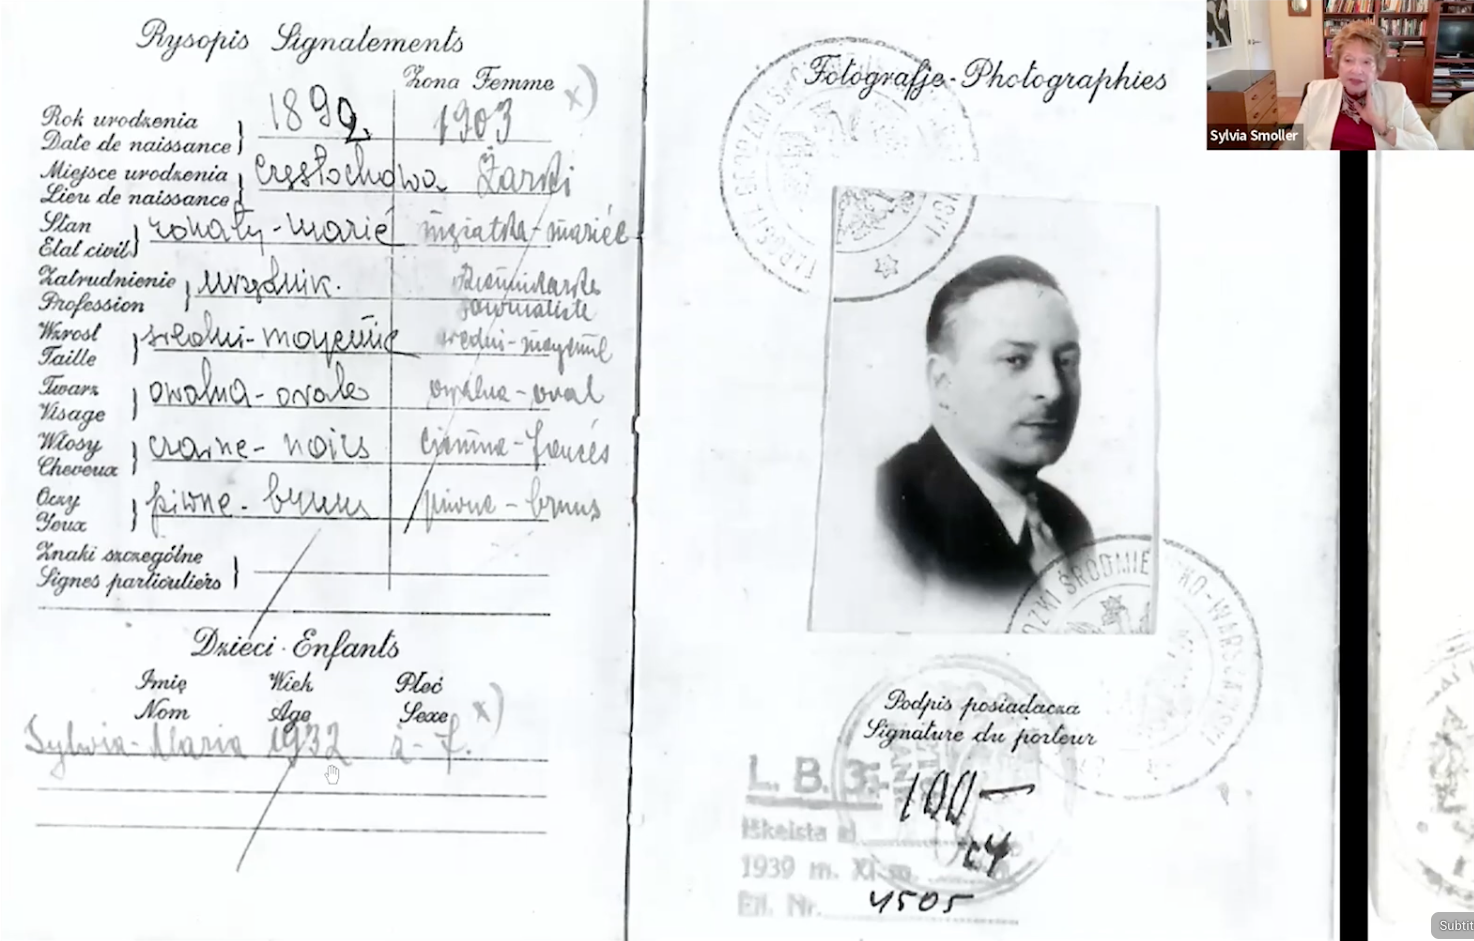 Rysopis Signalements
Żona Femme
x)
Rok urodzenia
Date de naissance
1892
1903
Miejsce urodzenia
Lieu de naissance
Częstochowa
Żarki
Stan
Etat civil
żonaty-marié
mężatka-mariée
Zatrudnienie
Profession
urzędnik.
dziennikarka
journaliste
Wzrost
Taille
średni-moyenne
średni-moyenne
Twarz
Visage
owalna-ovale
owalna-oval
Włosy
Cheveux
czarne-noirs
ciemne-foncés
Oczy
Yeux
piwne-bruns
piwne-bruns
Znaki szczególne
Signes particuliers
Dzieci-Enfants
Imię
Nom
Wiek
Age
Płeć
Sexe
x)
Sylwia-Maria 1932 ż-f.
Fotografje-Photographies
Podpis posiadacza
Signature du porteur
L. B. 3.
100-
Iškeista
1939 m. XI m.
Eil. Nr. 4505
Sylvia Smoller
Subtit